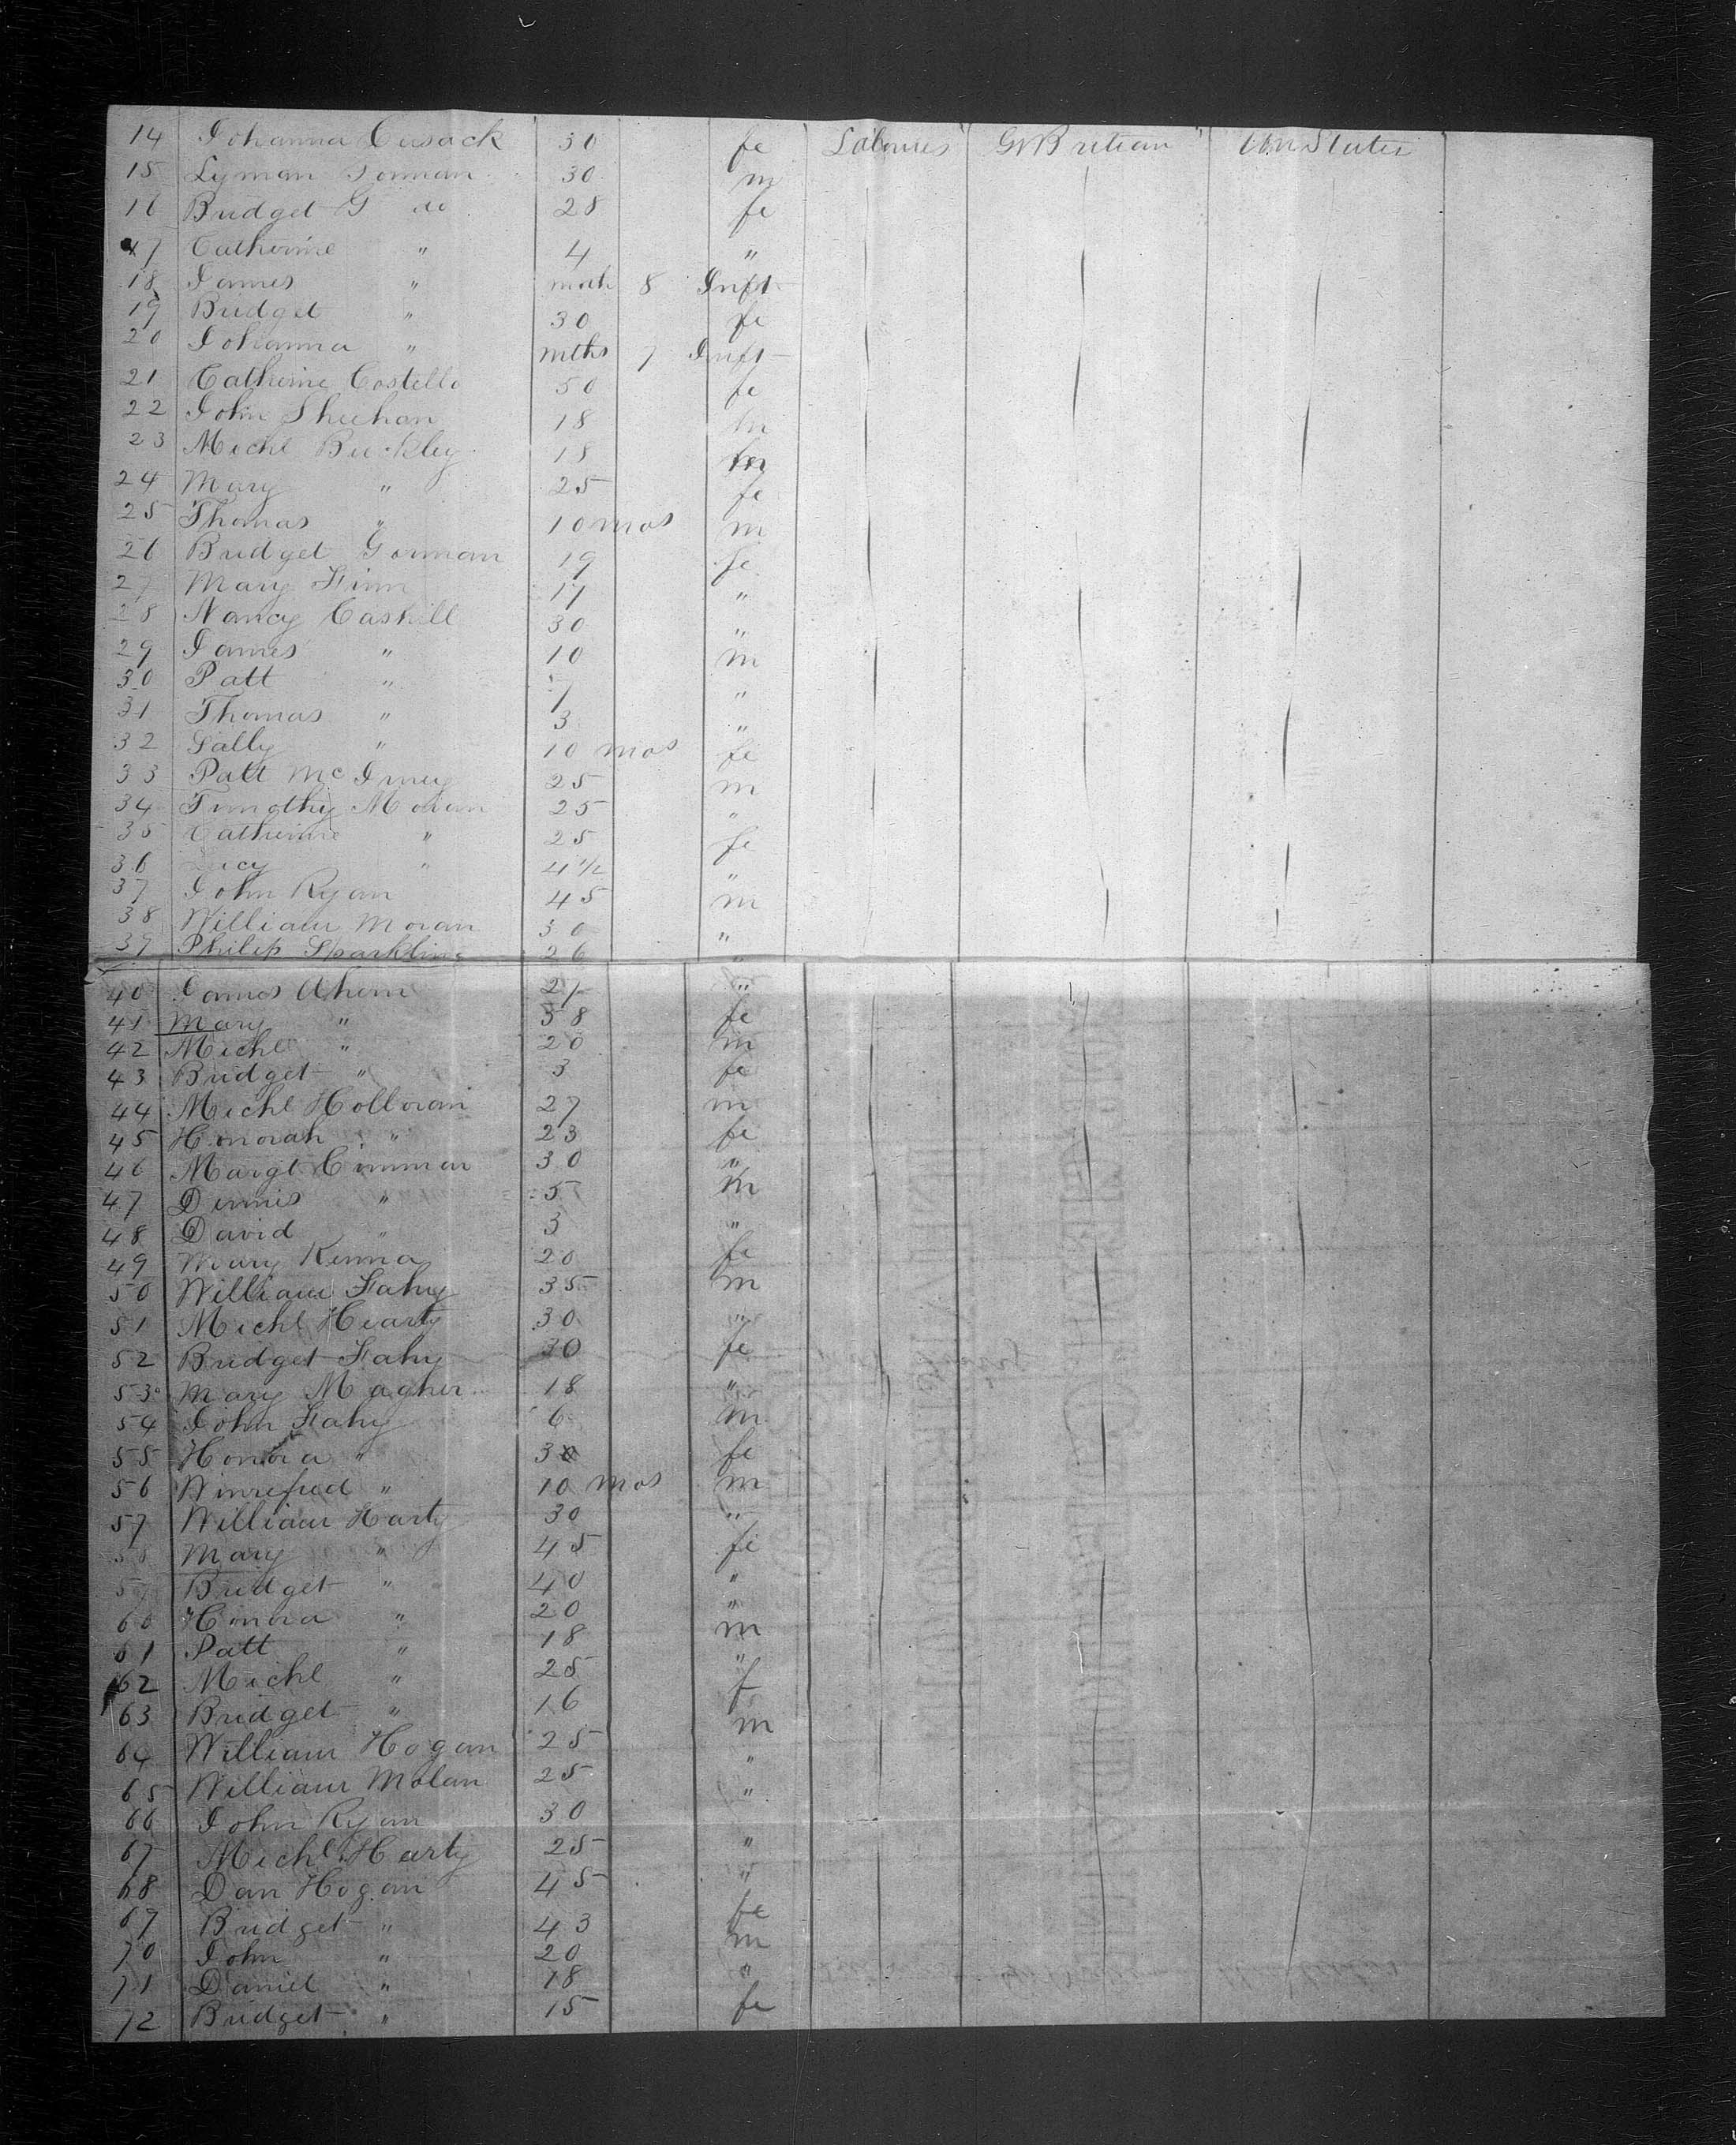 14 Johanna Cusack 30 fe Laboures Gt Britian Un States
15 Lyman Gorman 30 m
16 Bridget G do 28 fe
17 Catherine " 4 "
18 James " mths 8 Inft
19 Bridget " 30 fe
20 Johanna " mths 7 Inft
21 Catherine Costello 50 fe
22 John Sheehan 18 m
23 Michl Buckley 18 m
24 Mary " 25 fe
25 Thomas " 10 mos m
26 Bridget Gorman 19 fe
27 Mary Finn 17 "
28 Nancy Cashill 30 "
29 James " 10 m
30 Patt " 7 "
31 Thomas " 3 "
32 Sally " 10 mos fe
33 Patt Mc 25 m
34 Timothy Moran 25 "
35 Catherine " 25 fe
36 " 4 1/2 "
37 John Ryan 45 m
38 William Moran 30 "
39 Philip Sparkling 26 "
40 James Ahern 27 "
41 Mary " 38 fe
42 Michl " 20 m
43 Bridget " 3 fe
44 Michl Holloran 27 m
45 Honorah " 23 fe
46 Margt 30 "
47 Dennis " 5 m
48 David " 3 "
49 Mary Kenna 20 fe
50 William Fahy 35 m
51 Michl Hearty 30 "
52 Bridget Fahy 30 fe
53 Mary Magher 18 "
54 John Fahy 6 m
55 Honora " 3 fe
56 Winrefred " 10 mos m
57 William Harty 30 "
58 Mary " 45 fe
59 Bridget " 40 "
60 Honora " 20 "
61 Patt " 18 m
62 Michl " 25 "
63 Bridget " 16 f
64 William Hogan 25 m
65 William Molan 25 "
66 John Ryan 30 "
67 Michl Harty 25 "
68 Dan Hogan 45 "
69 Bridget " 43 fe
70 John " 20 m
71 Daniel " 18 "
72 Bridget " 15 fe